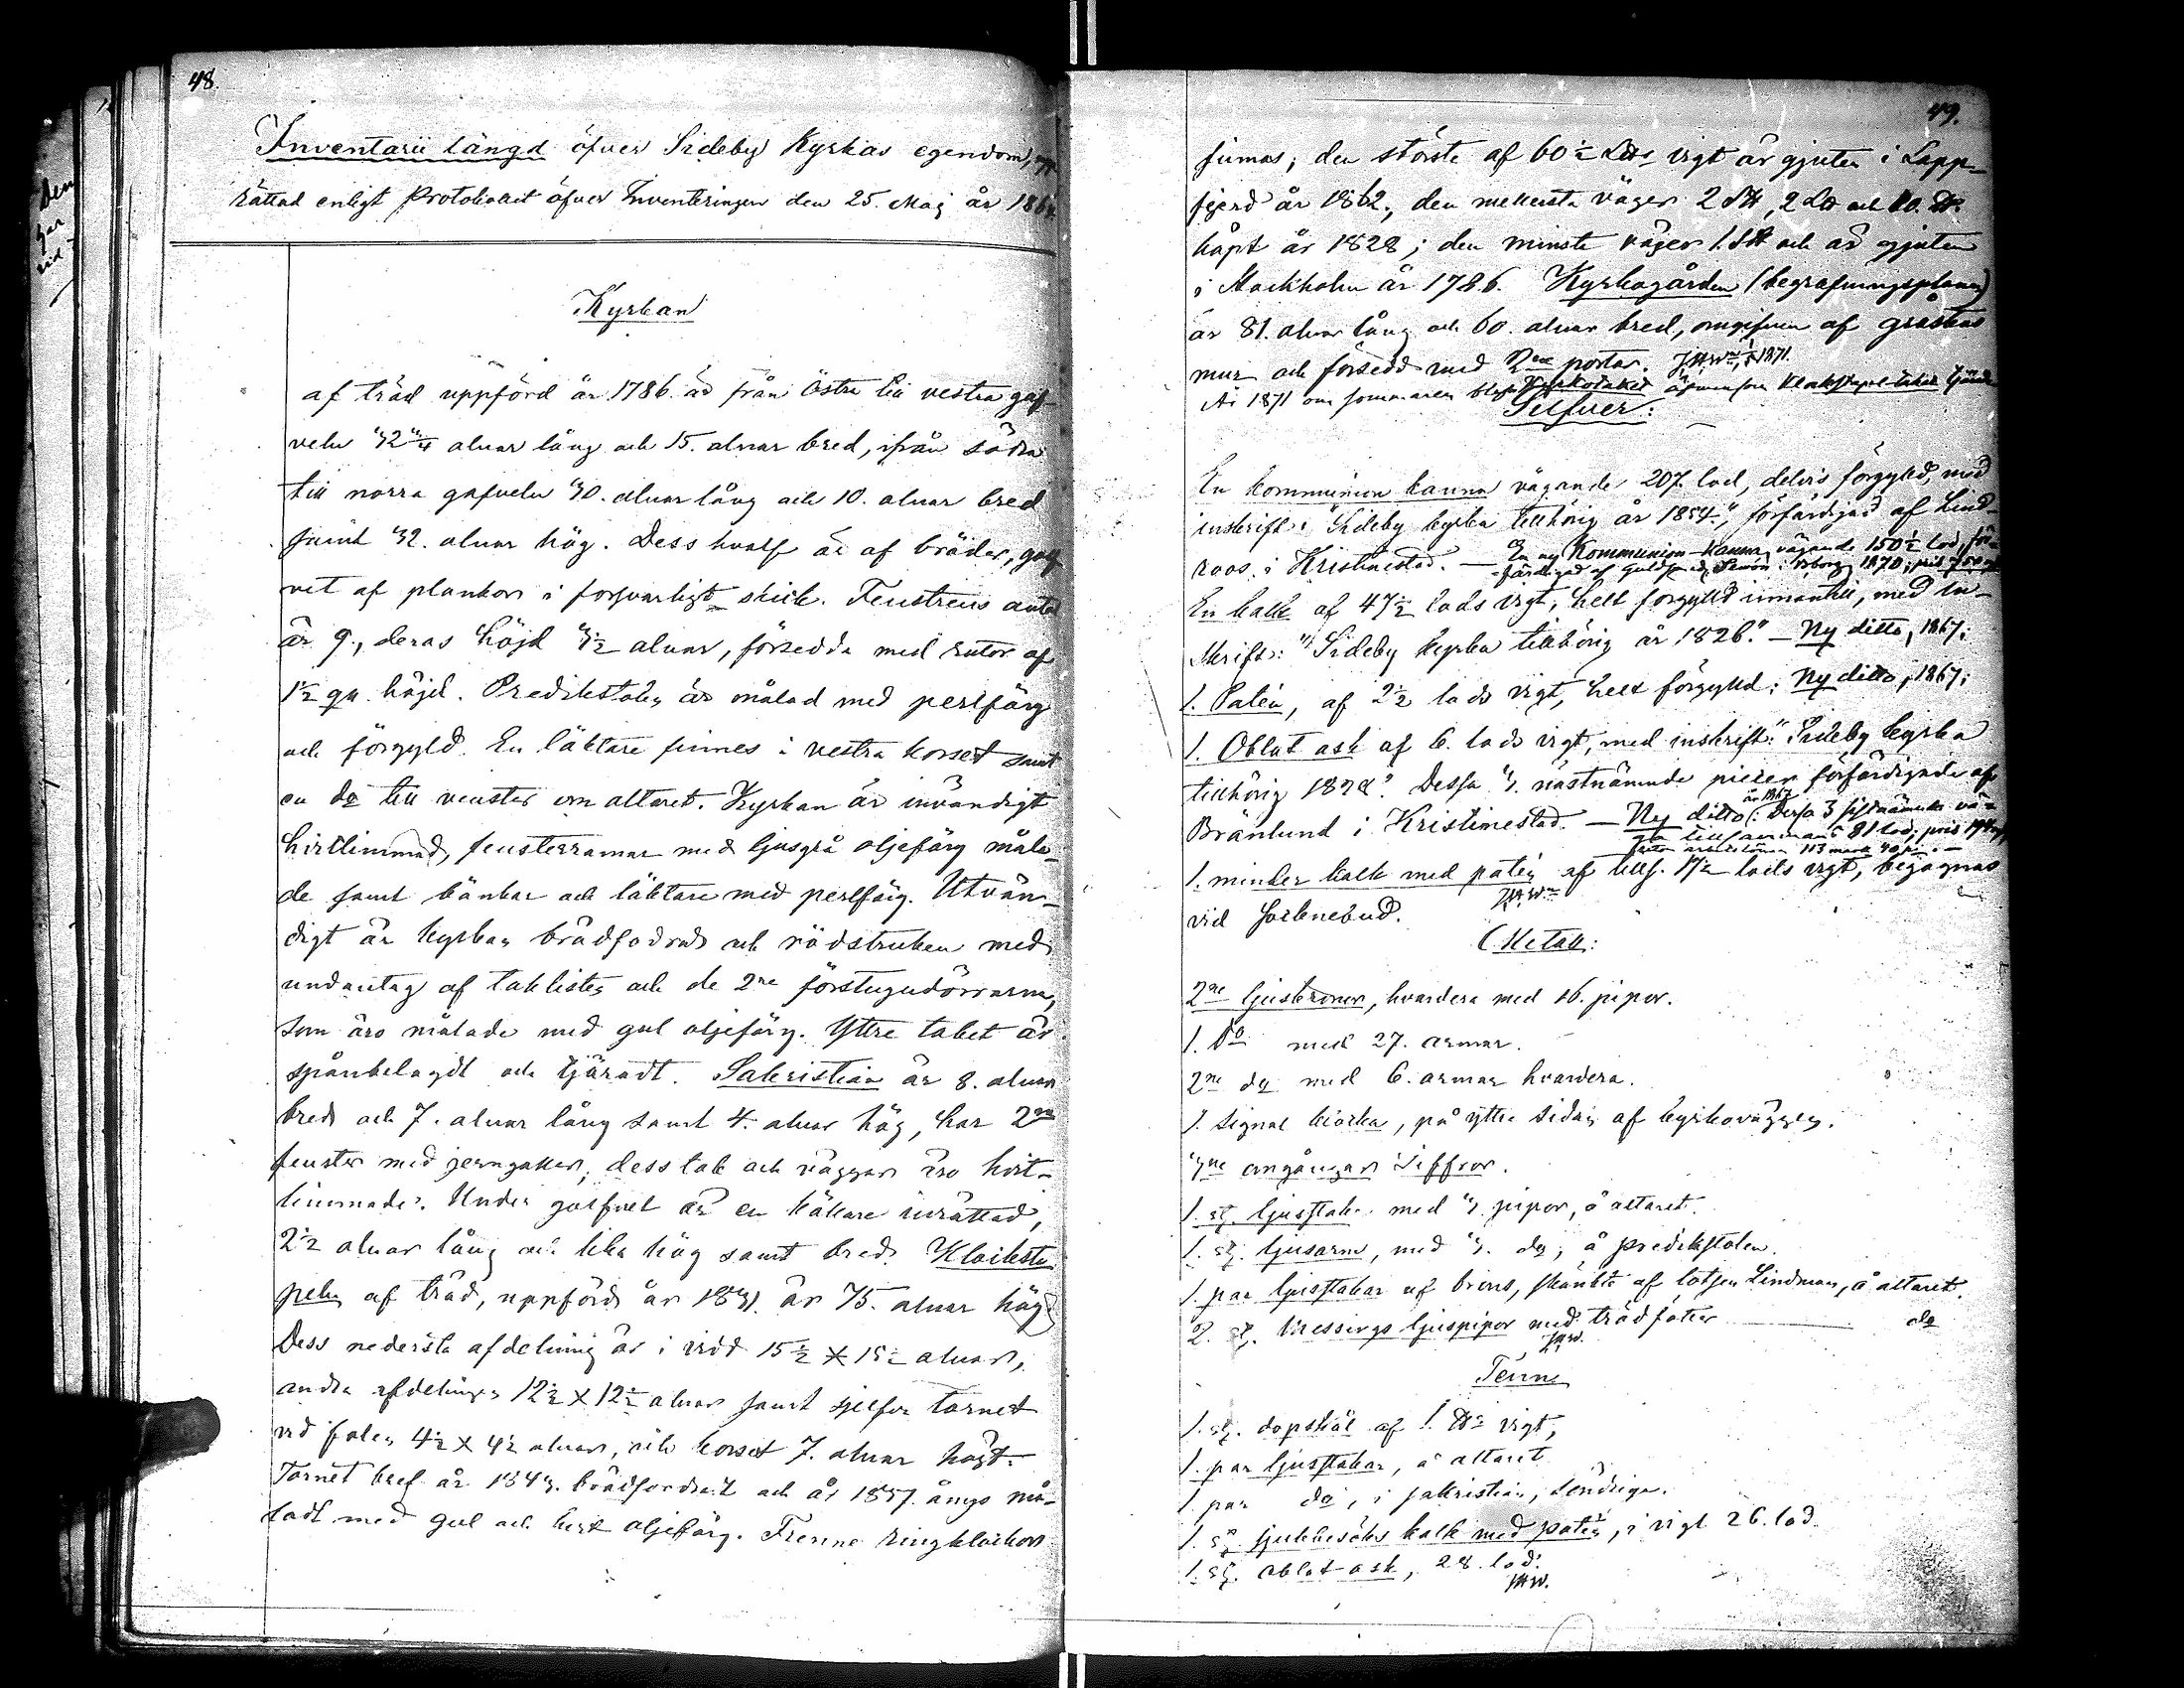 48.
Inventarii längd öfver Sideby Kyrkas egendom, upp-
rättad enligt Protokollet öfver Inventeringen den 25. Maj år 1864.
Kyrkan
af träd uppförd år 1786. är från östra till vestra gaf-
veln 32 3/4 alnar lång och 15. alnar bred, ifrån södra
till norra gafveln 30. alnar lång och 10. alnar bred
samt 32. alnar hög. Dess hvalf är af bräder, golf-
vet af plankor i försvarligt skick. Fenstrens antal
är 9., deras höjd 3 1/2 alnar, försedda med rutor af
1 1/2 qu. höjd. Predikstolen är målad med perlfärg
och förgyld. En läktare finnes i vestra korset samt
en do till venster om altaret. Kyrkan är invändigt
hvitlimmad, fensterramar med ljusgrå oljefärg måla-
de samt bänkar och läktare med perlfärg. Utvän-
digt är kyrkan brädfodrad och rödstruken med
undantag af taklisten och de 2ne förstugudörrarna,
som äro målade med gul oljefärg. Yttre taket är
spånbelagdt och tjäradt. Sakristian är 8. alnar
bred och 7. alnar lång samt 4. alnar hög, har 2ne
fenster med jerngaller, dess tak och väggar äro hvit-
limmade. Under golfvet är en källare inrättad,
2 1/2 alnar lång och lika hög samt bred. Klocksta-
peln af träd, uppförd år 1831. är 75. alnar hög.
Dess nedersta afdelning är i vidd 15 1/2 X 15 1/2 alnar,
andra afdelningen 12 1/2 X 12 1/2 alnar samt sjelfva tornet
vid foten 4 1/2 X 4 1/2 alnar, och korset 7. alnar högt.
Tornet blef år 1843. brädfordradt och år 1857. ånyo må-
ladt med gul och hvit oljefärg. Trenne ringklockor
49.
finnas; den störste af 60 1/2 vigt är gjuten i Lapp-
fjerd år 1862., den mellersta väger 2 och 10.
köpt år 1828; den minste väger 1. och är gjuten
i Stockholm år 1786. Kyrkogården (begrafningsplanen)
är 81. alnar lång och 60. alnar bred, omgifven af gråstens
mur och försedd med 2ne portar. 1871.
År 1871 om sommaren blef Kyrkotaket äfvensom Klockstapeltaket tjärade
Silfver:
En kommunion kanna vägande 207. lod, delvis förgylld, med
inskrift: "Sideby kyrka tillhörig år 1854.", förfärdigad af Lind-
roos i Kristinestad. — En ny Kommunion-kanna vägande 150 1/2 lod, för-
färdigad af Guldsmed 1870;
En kalk af 47 1/2 lods vigt, helt förgylld innantill, med In-
skrift: "Sideby kyrka tillhörig år 1826." — Ny ditto, 1867;
1. Patén, af 2 1/2 lods vigt, helt förgylld; Ny ditto, 1867;
1. Oblat ask af 6. lods vigt, med inskrift: "Sideby kyrka
tillhörig 1828". Dessa 3. nästnämnde pieçer förfärdigade af
Bränlund i Kristinestad. — Ny ditto år 1867: Dessa 3 sistnämnda vä-
ga tillsammans 81 lod; pris
113 mark 40 pi. —
1. minder kalk med patén af tills. 17 1/2 lods vigt, begagnas
vid sockenebud.
Metall:
2ne ljuskronor, hvardera med 16. pipor.
1. Do med 27. armar.
2ne do med 6. armar hvardera.
1. signal klocka, på yttre sidan af kyrkoväggen.
3ne omgångar siffror.
1. st. ljusstake med 3. pipor, å altaret.
1. st. ljusarm, med 3. do, å predikstolen.
1. par ljusstakar af brons, skänkte af lotsen Lindman, å altaret.
2. st. Messings ljuspipor med trädfötter — do
Tenn
1. st. dopskål af 1. vigt,
1. par ljusstakar, å altaret
1. par do, i sakristian, söndriga.
1. st. sjukbesöks kalk med patén, i vigt 26. lod.
1. st. oblat ask, 28. lod.